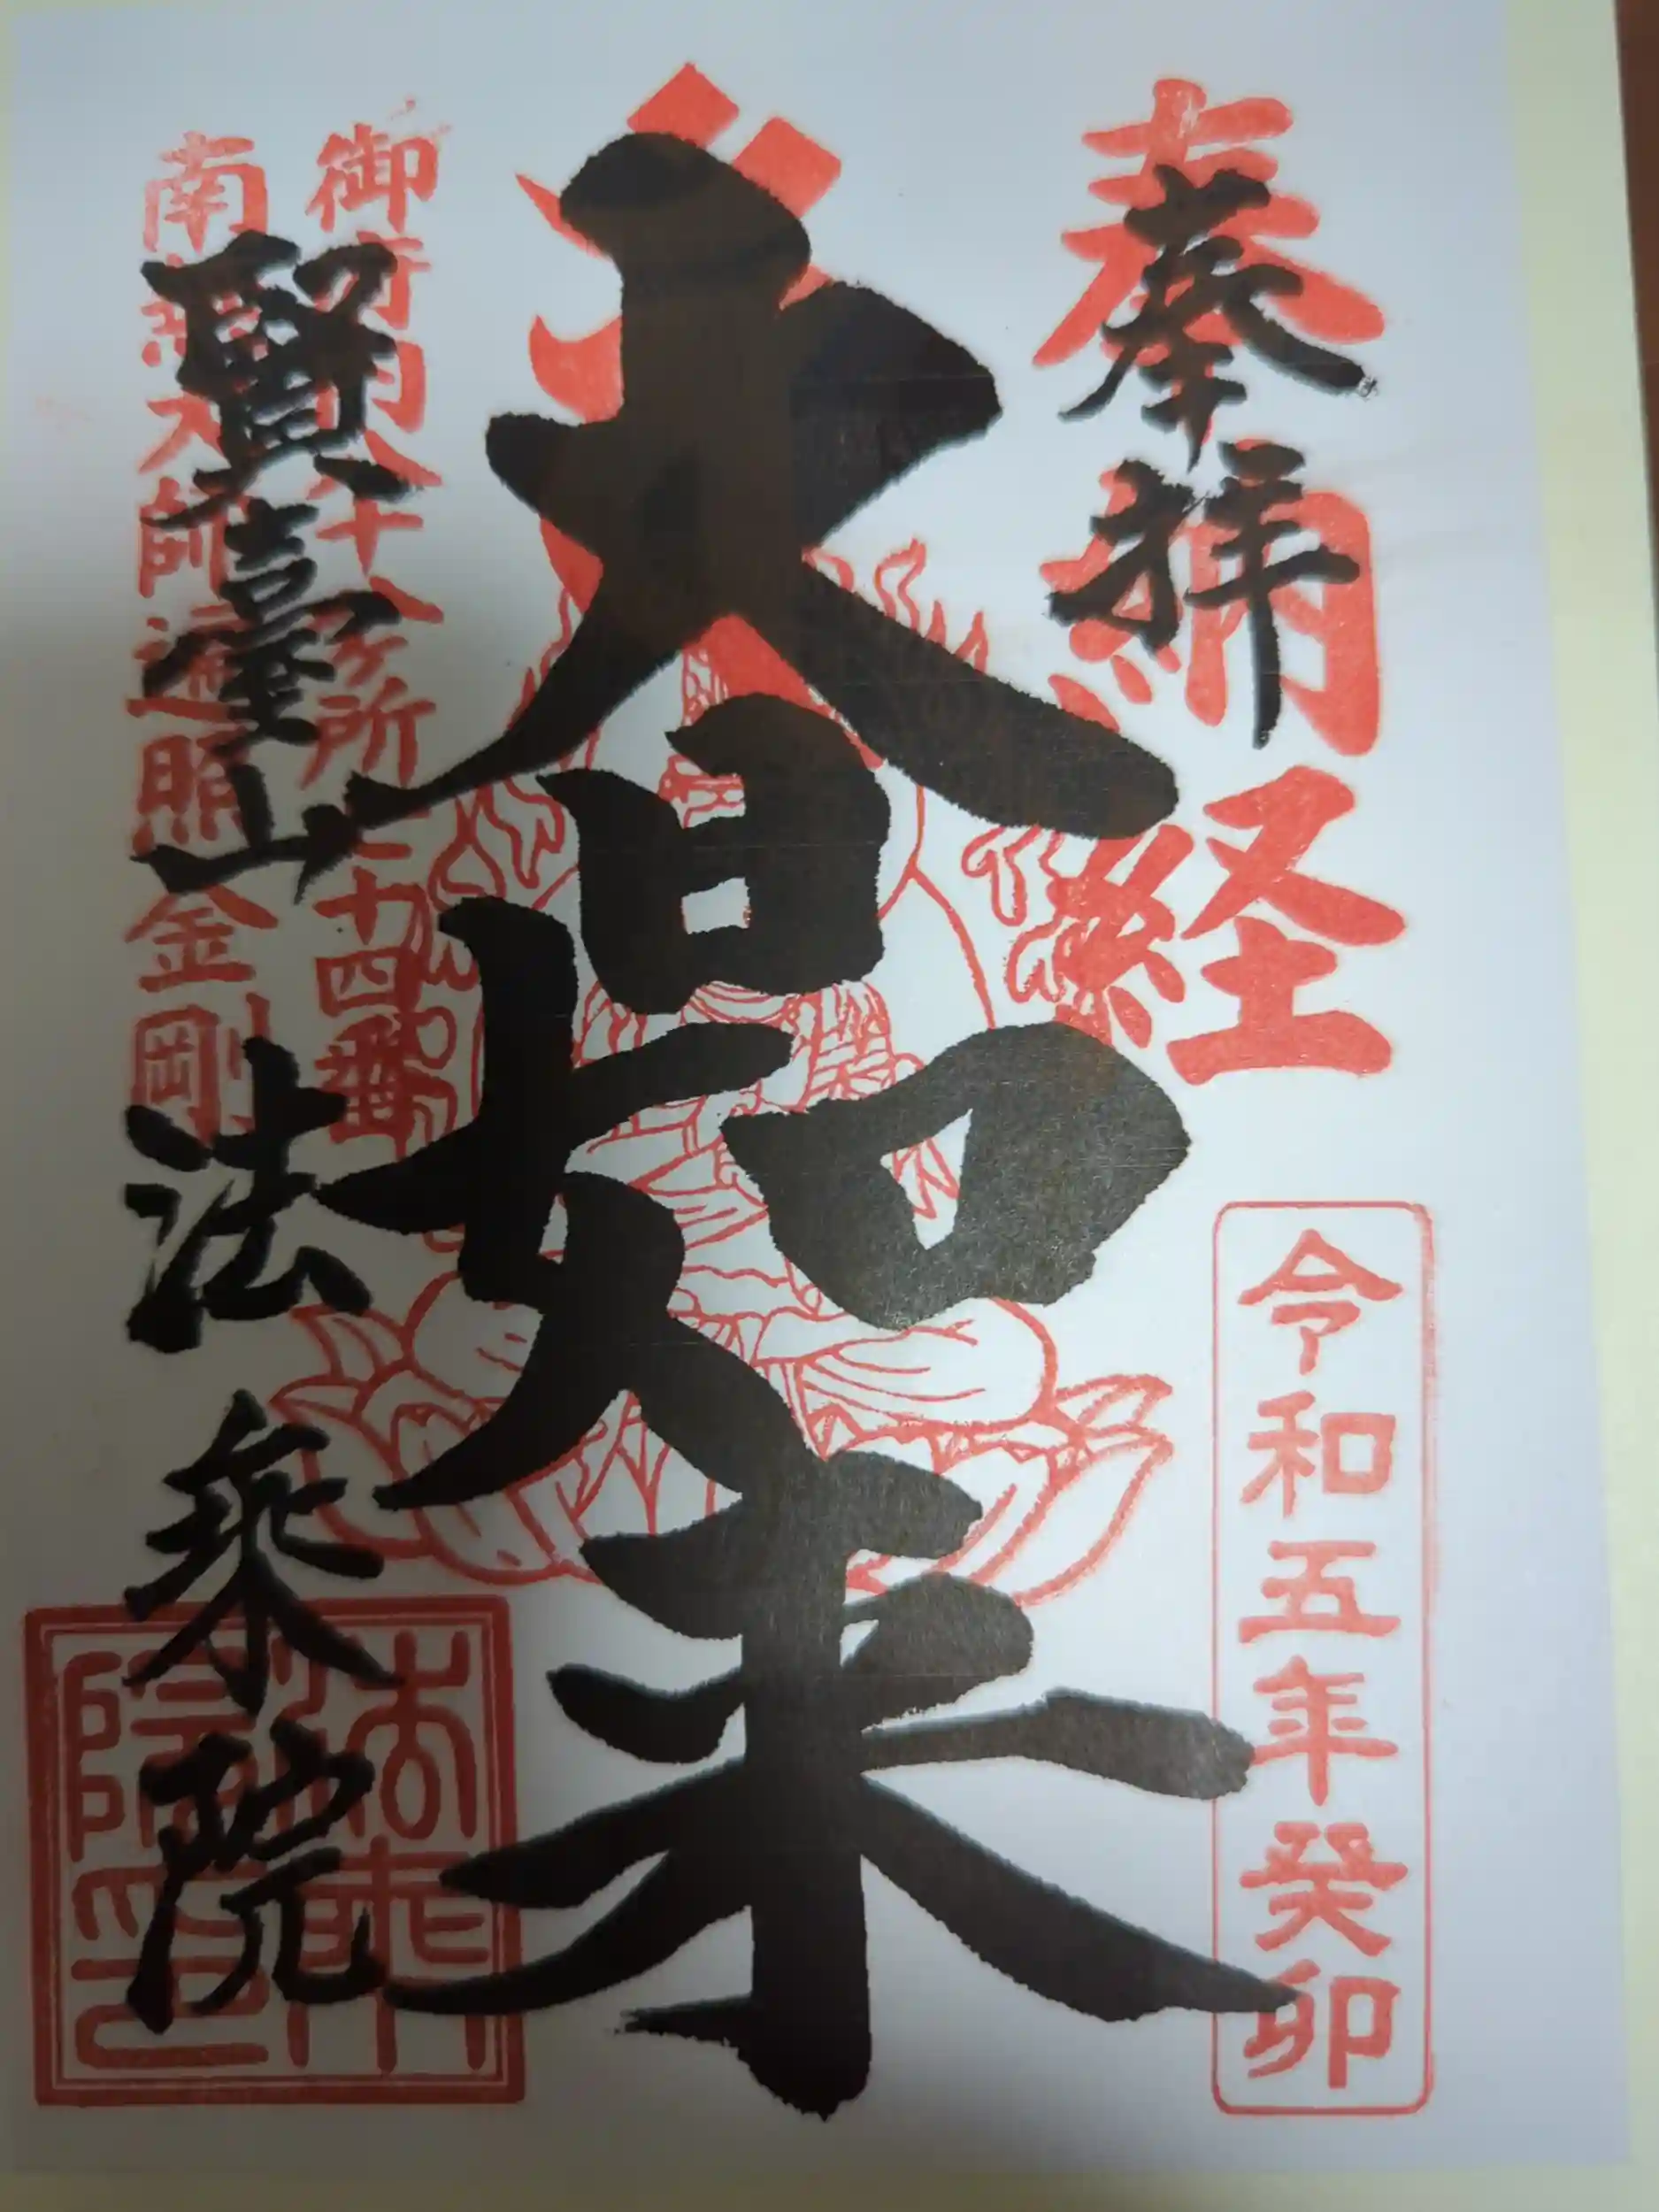 奉納経
奉拝
令和五年癸卯
大日如来
御府内八十八ヶ所七十四番
南無大師遍照金剛
賢臺山
法乗院
法乗院印